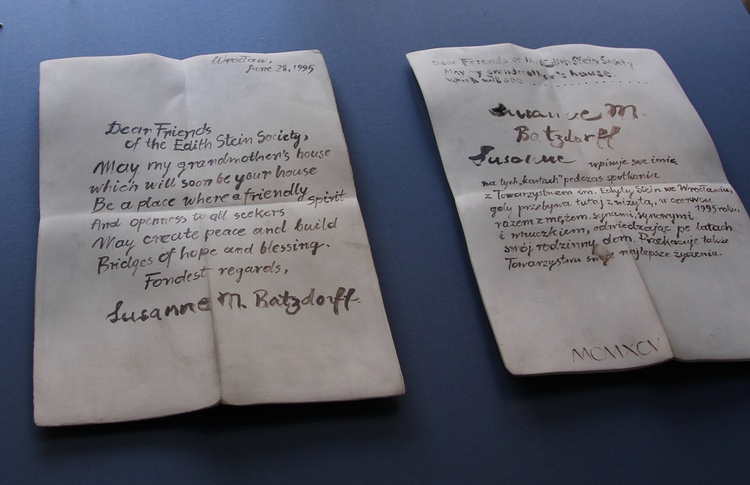 Wrocław,
June 28, 1995
Dear Friends
of the Edith Stein Society,
May my grandmother's house
which will soon be your house
Be a place where a friendly spirit
And openness to all seekers
May create peace and build
Bridges of hope and blessing.
Fondest regards,
Susanne M. Batzdorff
Dear Friends of the Edith Stein Society
May my grandmother's house
which will
Susanne M.
Batzdorff
Susanne wpisuje swe imię
na tych „kartach” podczas spotkania
z Towarzystwem im. Edyty Stein we Wrocławiu,
gdy przebywa tutaj z wizytą, w czerwcu
1995 roku,
razem z mężem, synami, synowymi
i wnuczkiem, odwiedzając po latach
swój rodzinny dom. Przekazuje także
Towarzystwu swoje najlepsze życzenia.
MCMXCV